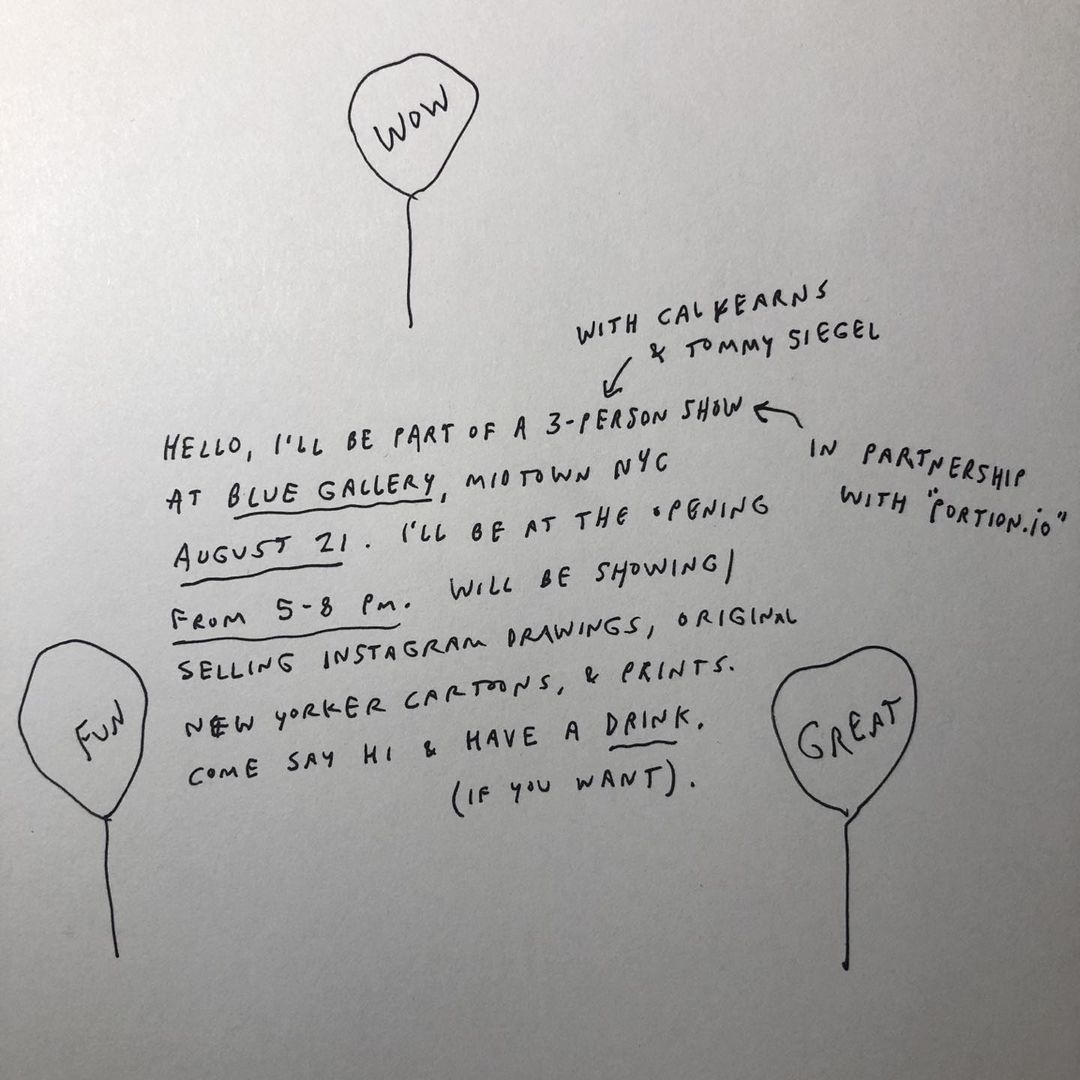 WOW
WITH CAL KEARNS
& TOMMY SIEGEL
HELLO, I'LL BE PART OF A 3-PERSON SHOW
IN PARTNERSHIP
WITH "PORTION.io"
AT BLUE GALLERY, MIDTOWN NYC
AUGUST 21. I'LL BE AT THE OPENING
FROM 5-8 PM. WILL BE SHOWING/
SELLING INSTAGRAM DRAWINGS, ORIGINAL
NEW YORKER CARTOONS, & PRINTS.
COME SAY HI & HAVE A DRINK.
(IF YOU WANT).
FUN
GREAT